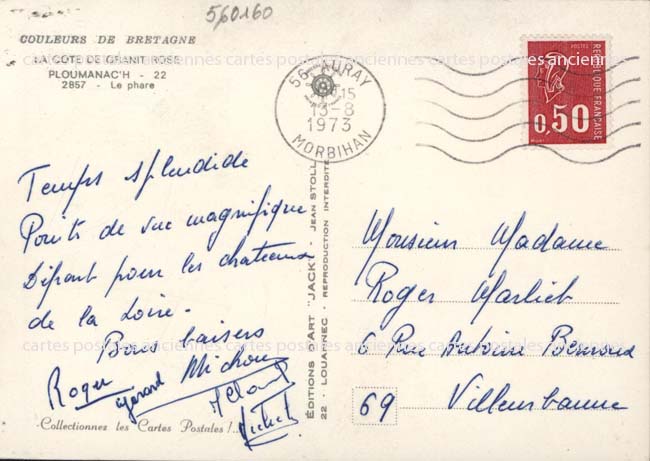 560160
COULEURS DE BRETAGNE
LA COTE DE GRANIT ROSE
PLOUMANAC'H - 22
2857 - Le phare
cartes postales anciennes cartes postales anciennes cartes postales anciennes
56 - AURAY
13-8
1973
MORBIHAN
POSTES
REPUBLIQUE FRANÇAISE
0,50
Temps splendide
Points de vue magnifique
Départ pour les chateaux
de la Loire.
Bons baisers
Roger Gérard Michou
Michel
Collectionnez les Cartes Postales !..
EDITIONS D'ART "JACK" - JEAN STOLL
22 - LOUANNEC - REPRODUCTION INTERDITE
Monsieur Madame
Roger Marlieb
6 Rue Antoine
69 Villeurbanne
cartes postales anciennes cartes postales anciennes cartes postales anciennes